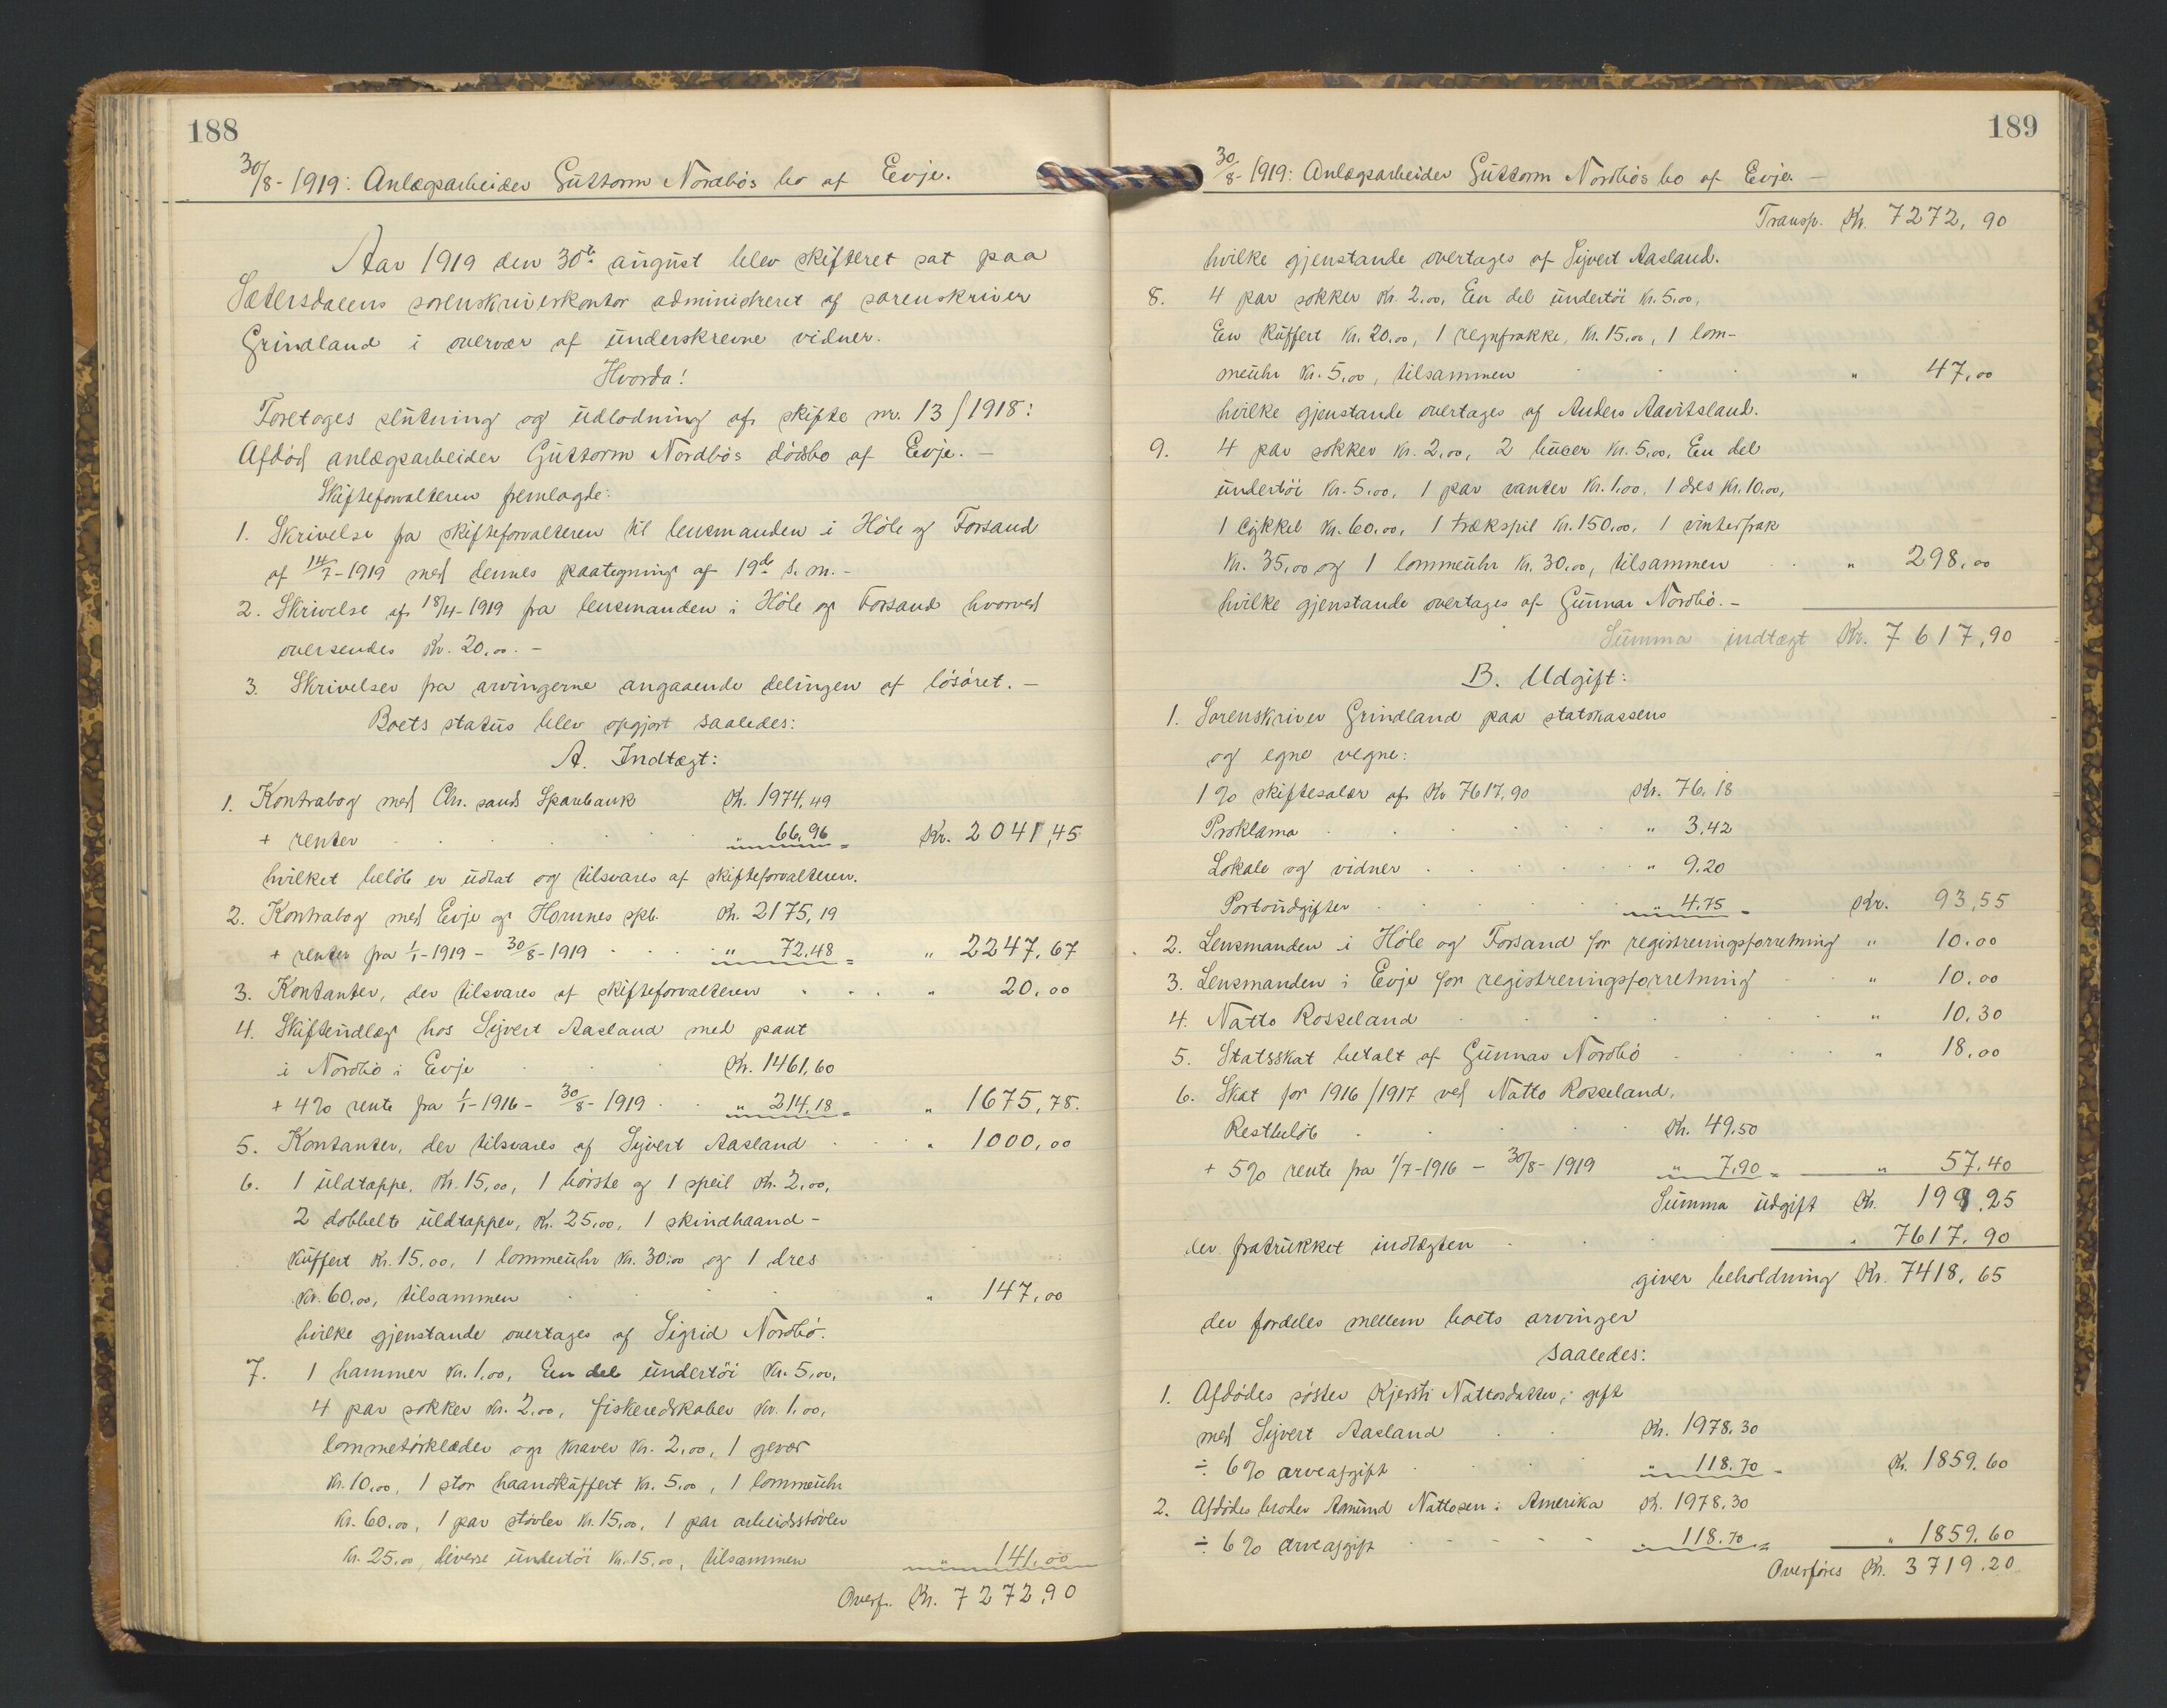 188
30/8-1919: Anlægsarbeider Guttorm Nordbøs bo af Evje.
Aar 1919 den 30te august blev skifteret sat paa
Sætersdalens sorenskriverkontor administreret af sorenskriver
Grindland i overvær af underskrevne vidner.
Hvorda!
Foretoges slutning og udlodning af skifte nr. 13/1918:
Afdød anlægsarbeider Guttorm Nordbøs dødsbo af Evje. -
Skifteforvalteren fremlagde:
1. Skrivelse fra skifteforvalteren til lensmanden i Höle og Forsand
af 14/7-1919 med dennes paategning af 19de s. m. -
2. Skrivelse af 18/4-1919 fra lensmanden i Höle og Forsand hvorved
oversendes Kr. 20,00. -
3. Skrivelser fra arvingerne angaaende delingen af lösöret. -
Boets status blev opgjort saaledes:
A. Indtægt:
1. Kontrabog med Chr. sands Sparebank Kr. 1974,49
+ renter " 66,96 = Kr. 2041,45
hvilket beløb er udtat og tilsvares af skifteforvalteren.
2. Kontrabog med Evje og Hornnes spb. Kr. 2175,19
+ renter fra 1/1-1919 - 30/8-1919 " 72,48 = " 2247,67
3. Kontanter, der tilsvares af skifteforvalteren " 20,00
4. Skifteudlæg hos Sijvert Aasland med pant
i Nordbö i Evje Kr. 1461,60
+ 4% rente fra 1/1-1916 - 30/8-1919 " 214,18 = " 1675,78.
5. Kontanter, der tilsvares af Sijvert Aasland " 1000,00
6. 1 uldtæppe, Kr. 15,00, 1 börste og 1 speil Kr. 2,00,
2 dobbelte uldtæpper, Kr. 25,00, 1 skindhaand-
kuffert Kr. 15,00, 1 lommeuhr Kr. 30,00 og 1 dres
Kr. 60,00, tilsammen " 147,00
hvilke gjenstande overtages af Sigrid Nordbö.
7. 1 hammer Kr. 1,00, En del undertöi Kr. 5,00,
4 par sokker Kr. 2,00, fiskeredskaber Kr. 1,00,
lommetörklæder og kraver Kr. 2,00, 1 gevær
Kr. 10,00, 1 stor haandkuffert Kr. 5,00, 1 lommeuhr
Kr. 60,00, 1 par stövler Kr. 15,00, 1 par arbeidsstövler
Kr. 25,00, diverse undertöi Kr. 15,00, tilsammen " 141,00
Overf. Kr. 7272,90
189
30/8-1919: Anlægsarbeider Guttorm Nordbøs bo af Evje. -
Transp. Kr. 7272,90
hvilke gjenstande overtages af Sijvert Aasland.
8. 4 par sokker Kr. 2,00, En del undertöi Kr. 5,00,
En kuffert Kr. 20,00, 1 regnfrakke, Kr. 15,00, 1 lom-
meuhr Kr. 5,00, tilsammen " 47,00
hvilke gjenstande overtages af Anders Aavitsland.
9. 4 par sokker Kr. 2,00, 2 buxer Kr. 5,00, En del
undertöi Kr. 5,00, 1 par vanter Kr. 1,00, 1 dres Kr. 10,00,
1 cykkel Kr. 60,00, 1 trækspil Kr. 150,00, 1 vinterfrak
Kr. 35,00 og 1 lommeuhr Kr. 30,00, tilsammen " 298,00
hvilke gjenstande overtages af Gunnar Nordbö. -
Summa indtægt Kr. 7617,90
B. Udgift:
1. Sorenskriver Grindland paa statskassens
og egne vegne:
1% skiftesalær af Kr 7617,90 Kr. 76,18
Proklama " 3,42
Lokale og vidner " 9.20
Portoudgifter " 4.75 = Kr. 93,55
2. Lensmanden i Höle og Forsand for registreringsforretning " 10.00
3. Lensmanden i Evje for registreringsforretning " 10.00
4. Natto Rosseland " 10.30
5. Statsskat betalt af Gunnar Nordbö " 18,00
6. Skat for 1916/1917 ved Natto Rosseland,
Restbelöb Kr. 49.50
+ 5% rente fra 1/7-1916 - 30/8-1919 " 7,90 = " 57.40
Summa udgift Kr. 199,25
der fratrukket indtægten " 7617.90
giver beholdning Kr. 7418,65
der fordeles mellem boets arvinger
saaledes:
1. Afdödes söster Kjersti Nattosdatter, gift
med Sijvert Aasland Kr. 1978.30
÷ 6% arveafgift " 118.70 = Kr. 1859.60
2. Afdödes broder Amund Nattosen i Amerika Kr. 1978,30
÷ 6% arveafgift " 118.70 = " 1859.60
Overföres Kr. 3719.20